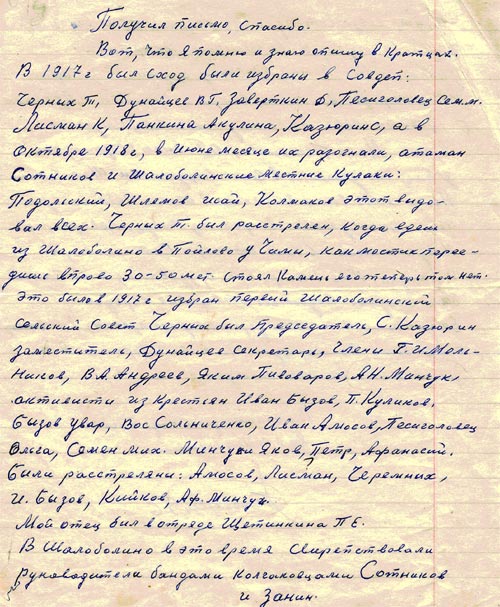 Получил письмо, спасибо.
Вот, что я помню и знаю опишу в Кратцах.
В 1917 г был сход были избраны в Совдеп:
Черных Т, Дунайцев В Г. Заверткин Ф, Песиголовец Сем.м.
Лисман К, Панкина Акулина, Казюрин С, а в
Октябре 1918 г, в июне месяце их разогнали, атаман
Сотников и Шалоболинские местние Кулаки:
Подольский, Шлемов исай, Колмаков этот видо-
вал всех. Черных Т. был расстрелен, когда едем
из Шалоболино в Пойлово у Чимы, как мостик перее-
диш вправо 30-50 мет. стоял Камень его теперь там нет.
Это было в 1917 г избран первий Шалоболинский
сельский Совет Черных был председатель, С. Казюрин
заместитель, Дунайцев секретарь, члены Г. И Моль-
ников, В.А. Андреев, Яким Пивоваров, А.Н. Минчук,
активисти из Крестьян Иван Бызов, П. Куликов,
Бызов увар, Вос Сольниченко, Иван Амосов, Песиголовец
Ольга, Семен Мих. Минчуки Яков, Петр, Афанасий.
были расстреляни: Амосов, Лисман, Черемных,
И. Бызов, Кийков, Аф. Минчук.
Мой отец был в отряде Щетинкина П Е.
В Шалоболино в это время свирепствовали
руководители бандами Колчаковцами Сотников
и Занин.